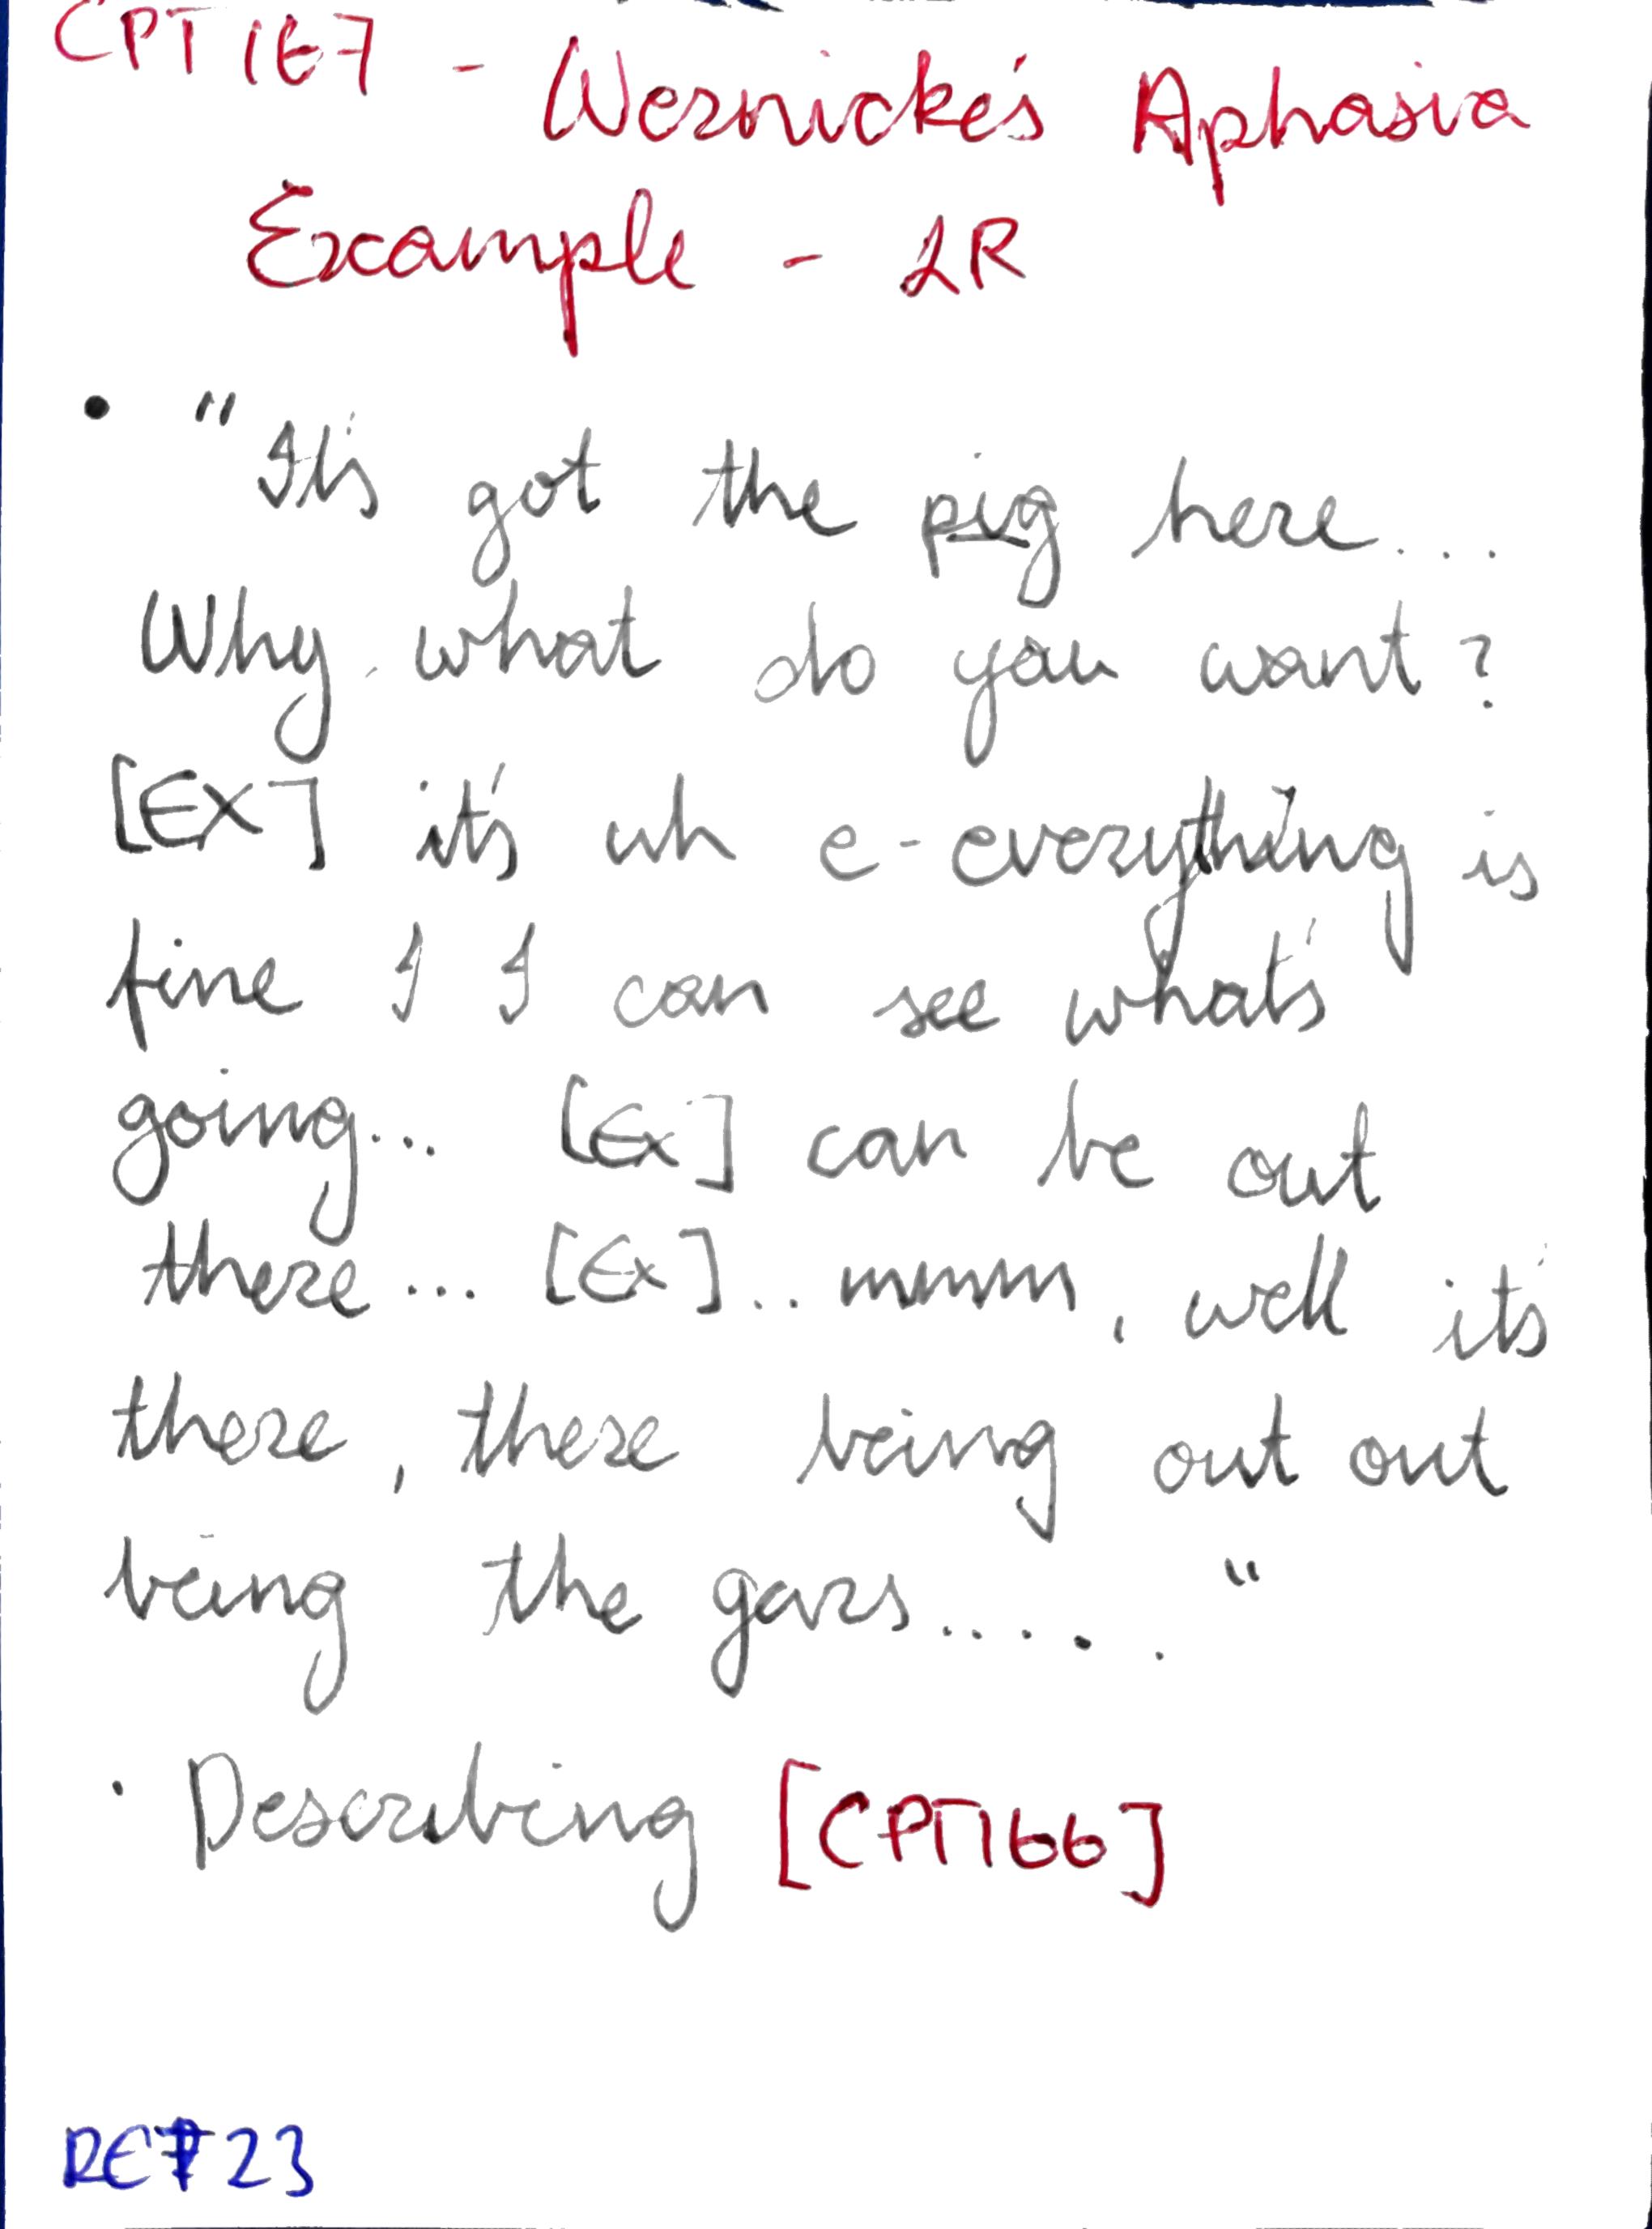 CPT167 - Wernicke's Aphasia
Example - LR
• "It's got the pig here...
Why what do you want?
[EX] it's uh e-everything is
fine I I can see what's
going... [Ex] can be out
there... [Ex].. mmmm, well it's
there, there being out out
being the gars...... "
• Describing [CPT166]
REF23